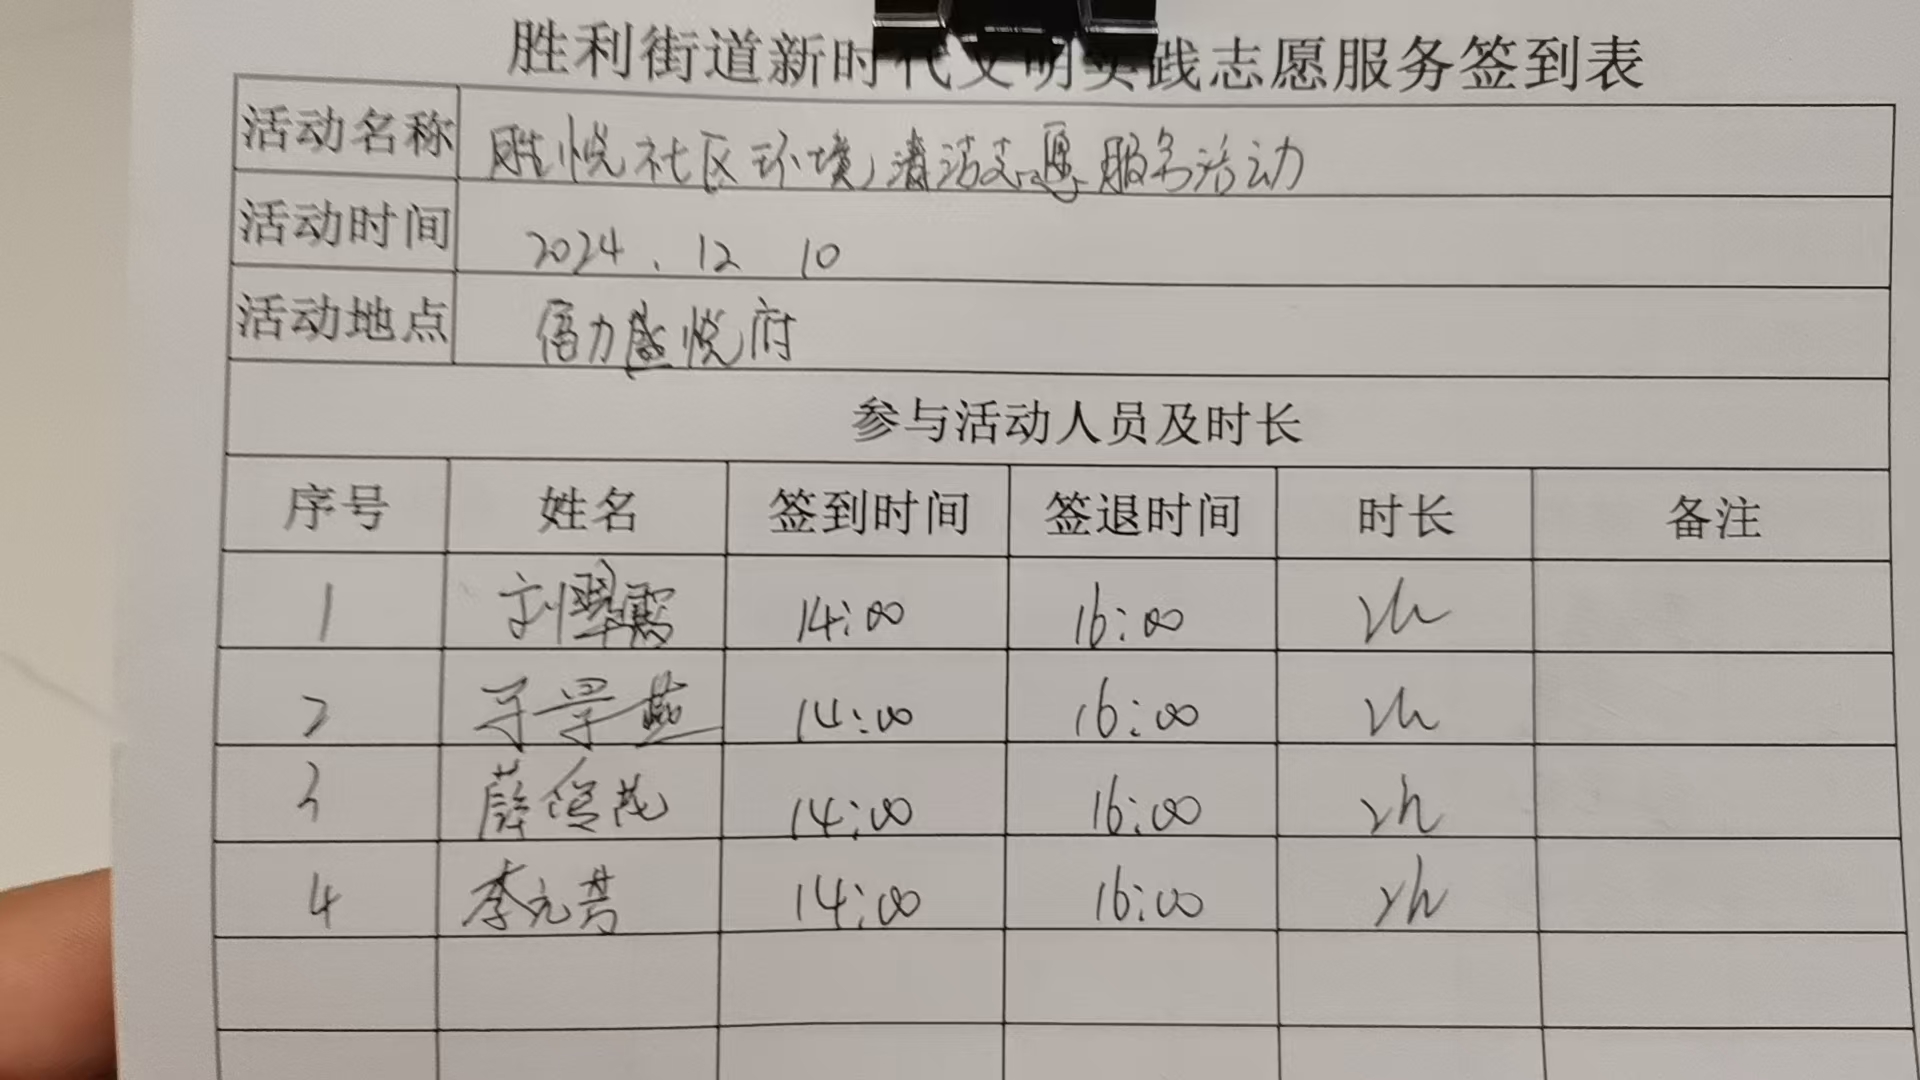 胜利街道新时代文明实践志愿服务签到表
活动名称 胜悦社区环境清洁志愿服务活动
活动时间 2024.12 10
活动地点 富力盛悦府
参与活动人员及时长
序号 姓名 签到时间 签退时间 时长 备注
1 刘翠霞 14:00 16:00 2h
2 14:00 16:00 2h
3 薛俊花 14:00 16:00 2h
4 李元芳 14:00 16:00 2h